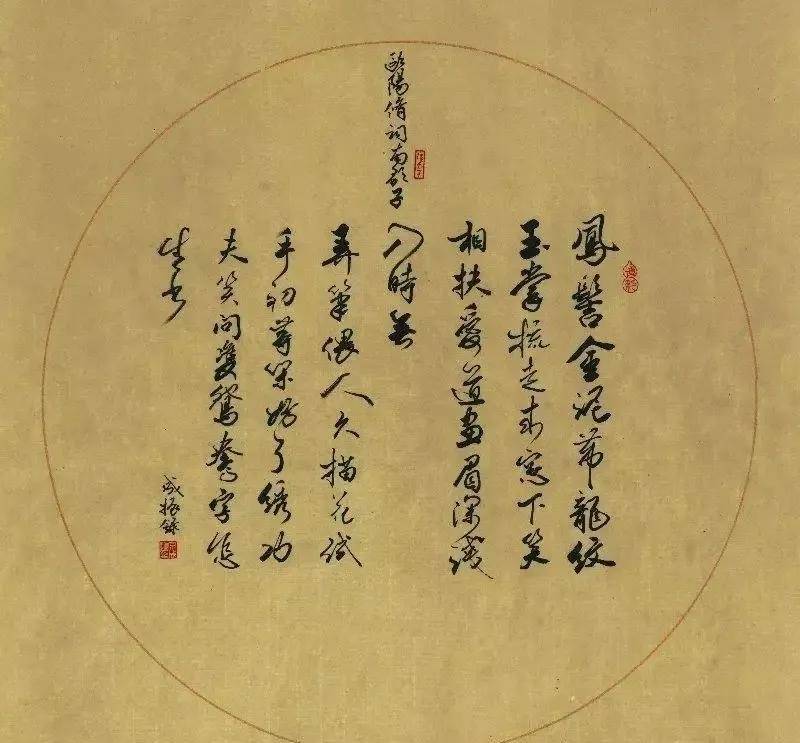 歐陽脩詞南歌子
鳳髻金泥帶龍紋
玉掌梳走來窓下笑
相扶愛道畫眉深淺
入時無
弄筆偎人久描花試
手初等閑妨了繡功
夫笑問雙鴛鴦字怎
生書
振錄